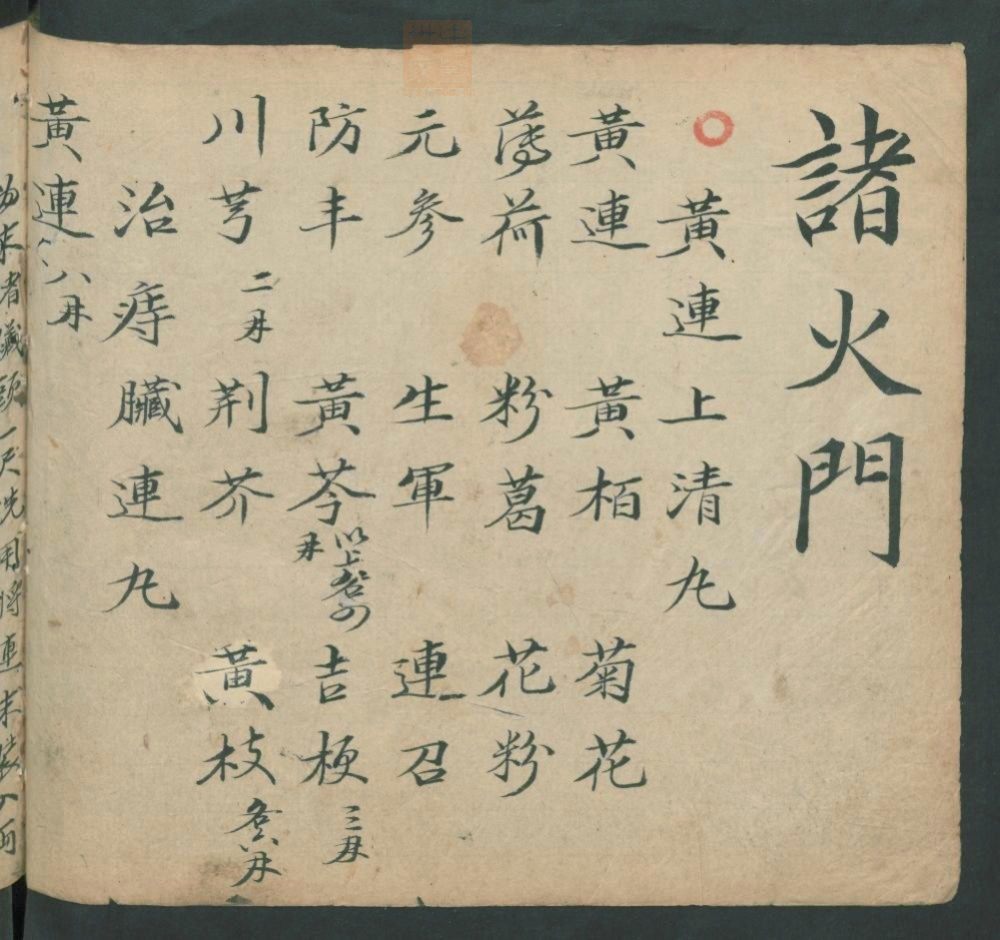 諸火門
黃連上清丸
黃連 黃栢 菊花
薄荷 粉葛 花粉
元參 生軍 連召
防丰 黃芩 以上各四丹 吉梗 三丹
川芎 二丹 荆芥 黃枝 各六丹
治痔臟連丸
黃連 八丹